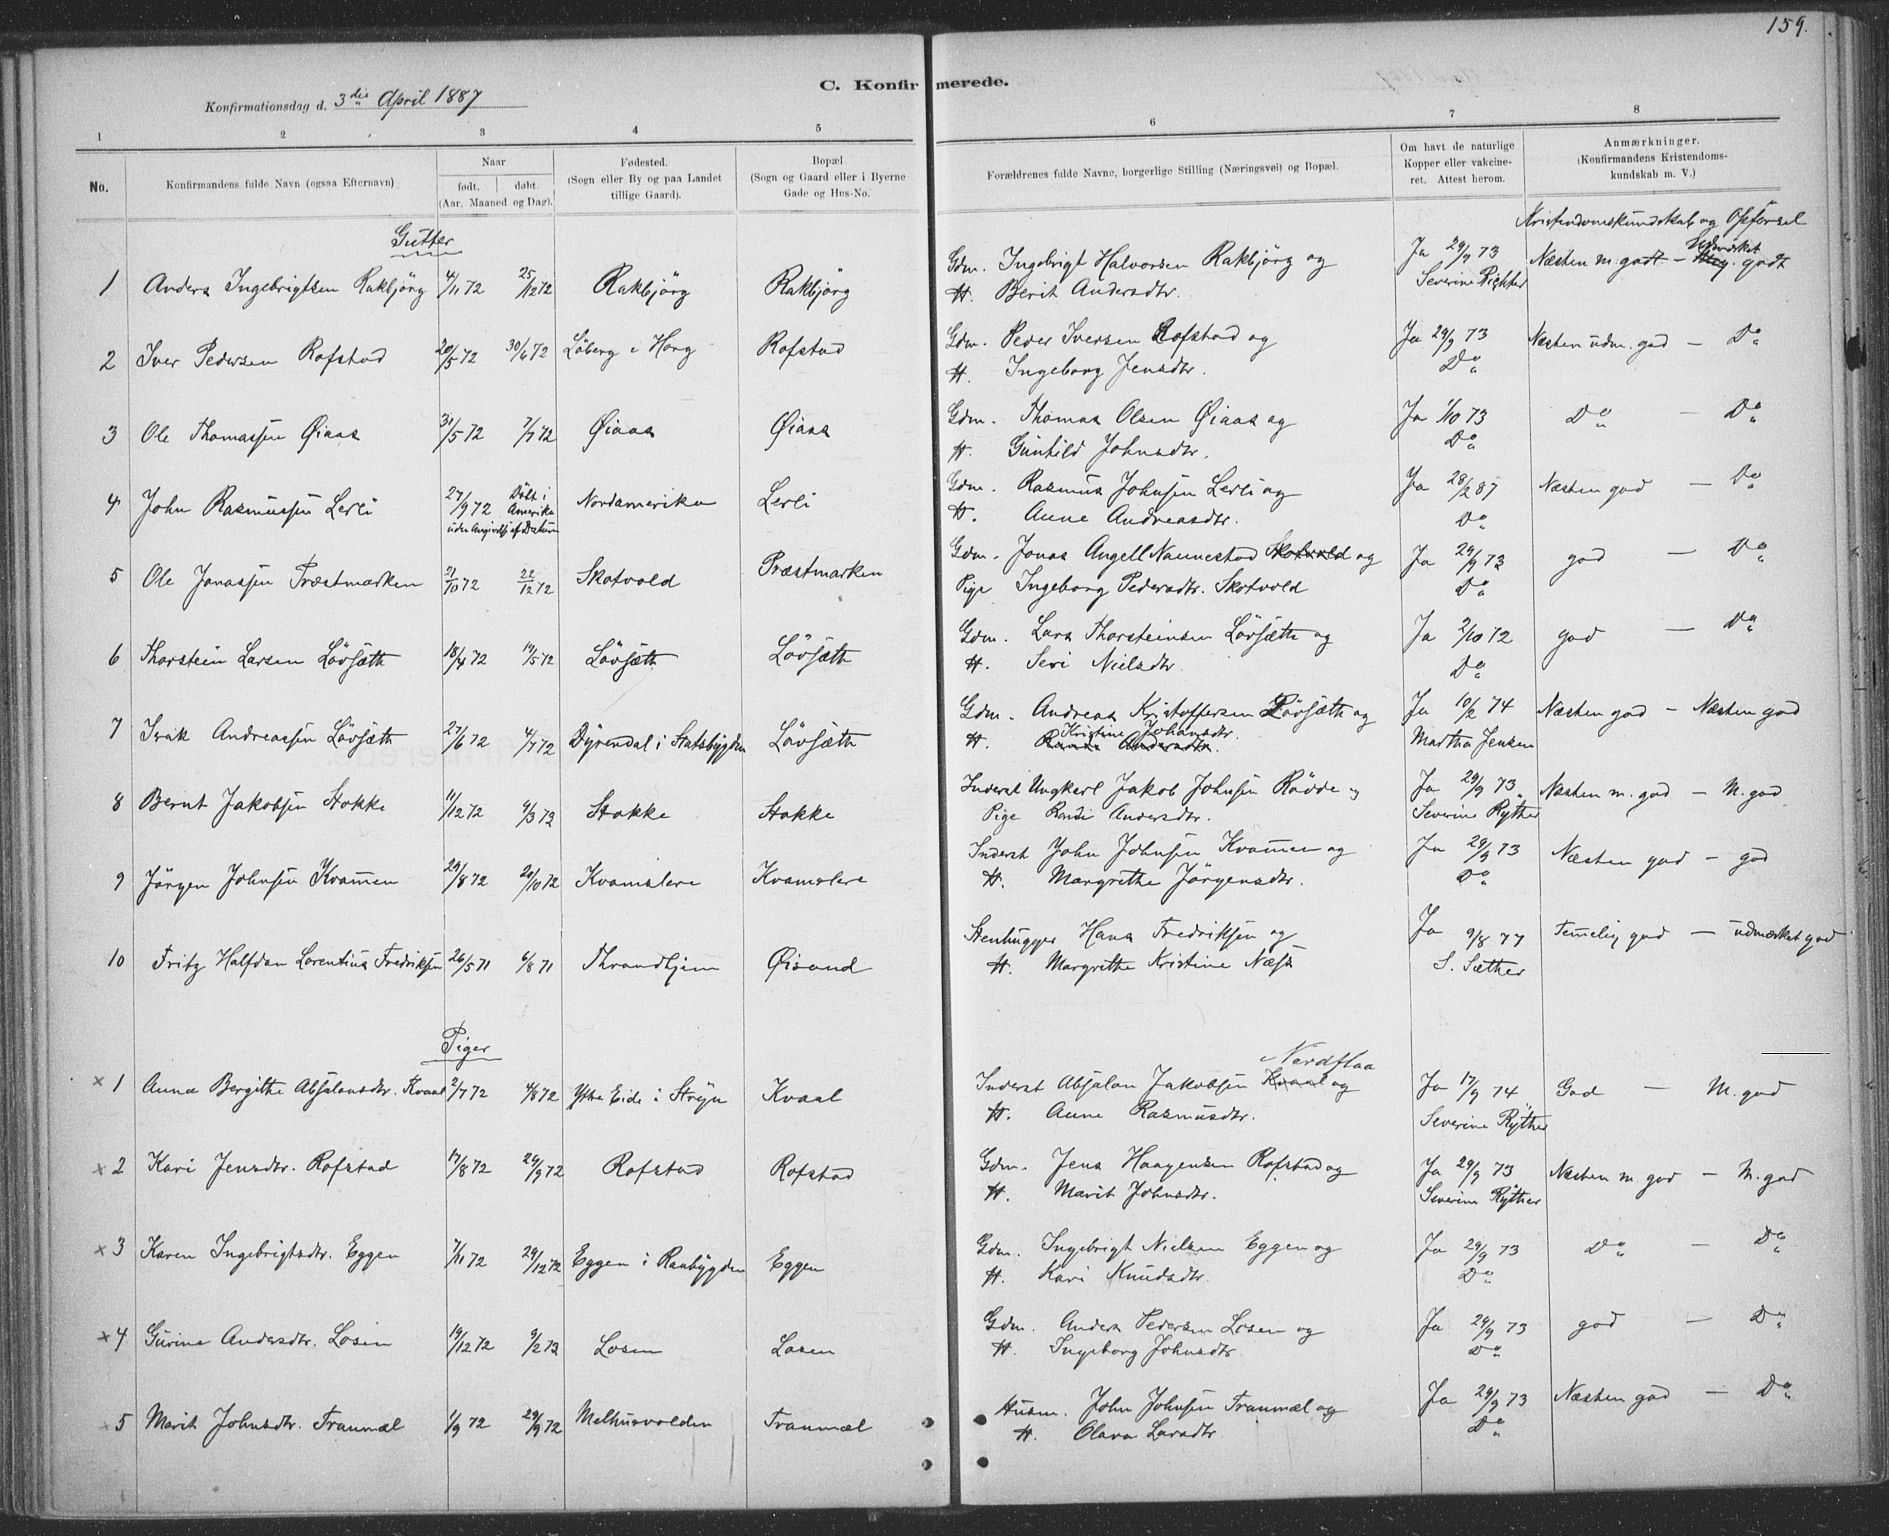 159.
C. Konfirmerede.
Konfirmationsdag d. 3die April 1887
1 2 3 4 5 6 7 8
No. Konfirmandens fulde Navn (ogsaa Efternavn) Naar født. døbt. (Aar. Maaned og Dag). Fødested. (Sogn eller By og paa Landet tillige Gaard). Bopæl (Sogn og Gaard eller i Byerne Gade og Hus-No. Forældrenes fulde Navne, borgerlige Stilling (Næringsvei) og Bopæl. Om havt de naturlige Kopper eller vakcineret. Attest herom. Anmærkninger. (Konfirmandens Kristendomskundskab m. V.)
Kristendomskundskab og Opförsel
Gutter
1 Anders Ingebrigtsen Rakbjörg 4/11 72 25/12 72 Rakbjörg Rakbjörg Gdm. Ingebrigt Halvorsen Rakbjörg og Ja 29/9 73 Næsten m. godt - Udmærket godt
H. Berit Andersdtr. Severine
2 Iver Pedersen Rofstad 20/5 72 30/6 72 Löberg i Horg Rofstad Gdm. Peder Iversen Rofstad og Ja 29/9 73 Næsten udm. god - Do
H. Ingeborg Jensdtr. Do
3 Ole Thomassen Øiaas 31/5 72 7/7 72 Øiaas Øiaas Gdm. Thomas Olsen Øiaas og Ja 1/10 73 Do - Do
H. Gunhild Johnsdtr. Do
4 John Rasmussen Lerli 27/9 72 Döbt i Amerika uden Angivelse af Datum Nordamerika Lerli Gdm. Rasmus Johnsen Lerli og Ja 28/2 87 Næsten god - Do
H. Anne Andreasdtr. Do
5 Ole Jonassen Præstmarken 21/10 72 22/12 72 Skotvold Præstmarken Gdm. Jonas Angell Nannestad Skotvold og Ja 29/9 73 god - Do
Pige Ingeborg Pedersdtr. Skotvold Do
6 Thorstein Larsen Lövsæth 18/4 72 19/5 72 Lövsæth Lövsæth Gdm. Lars Thorsteinsen Lövsæth og Ja 2/10 72 god - Do
H. Seri Nielsdtr. Do
7 Isak Andreassen Lövsæth 27/6 72 4/7 72 Dyrendal i Statsbygden Lövsæth Gdm. Andreas Kristoffersen Lövsæth og Ja 10/2 74 Næsten god - Næsten god
H. Kristine Johansdtr. Martha Jensen
8 Bernt Jakobsen Stokke 11/12 72 9/3 73 Stokke Stokke Inderst Ungkarl Jakob Johnsen Rödde og Ja 29/9 73 Næsten m. god - M. god
Pige Randi Andersdtr. Severine Ryther
9 Jörgen Johnsen Kvammen 29/8 72 20/10 72 Kvamslere Kvamslere Inderst John Johnsen Kvammen og Ja 29/9 73 Næsten god - god
H. Margrethe Jörgensdtr. Do
10 Fritz Halfdan Lorentius Fredriksen 26/5 71 6/8 71 Throndhjem Øisand Stenhugger Hans Fredriksen og Ja 9/8 77 Temmelig god - udmærket god
H. Margrethe Kristine Næss S. Sæther
Piger
x 1 Anna Bergithe Absalonsdtr. Kvaal 2/7 72 4/8 72 Ytre Eide i Stryn Kvaal Inderst Absalon Jakobsen Kvaal Nordflaa og Ja 17/9 74 God - M. god
H. Anne Rasmusdtr. Severine Ryther
x 2 Kari Jensdtr. Rofstad 17/8 72 29/9 72 Rofstad Rofstad Gdm. Jens Haagensen Rofstad og Ja 29/9 73 Næsten m. god - M. god
H. Marit Johnsdtr. Severine Ryther
x 3 Karen Ingebrigtsdtr. Eggen 7/11 72 29/12 72 Eggen i Ranbygden Eggen Gdm. Ingebrigt Nielsen Eggen og Ja 29/9 73 Do - Do
H. Kari Knudsdtr. Do
x 4 Gurine Andersdtr. Losen 19/12 72 9/2 73 Losen Losen Gdm. Anders Pedersen Losen og Ja 29/9 73 god - Do
H. Ingeborg Johnsdtr. Do
x 5 Marit Johnsdtr. Tranmæl 1/9 72 29/9 72 Melhusvolden Tranmæl Husm. John Johnsen Tranmæl og Ja 29/9 73 Næsten god - Do
H. Olava Larsdtr. Do